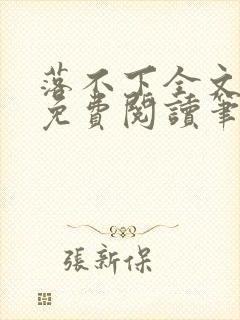 落不下全文
免費閱讀筆
張新保